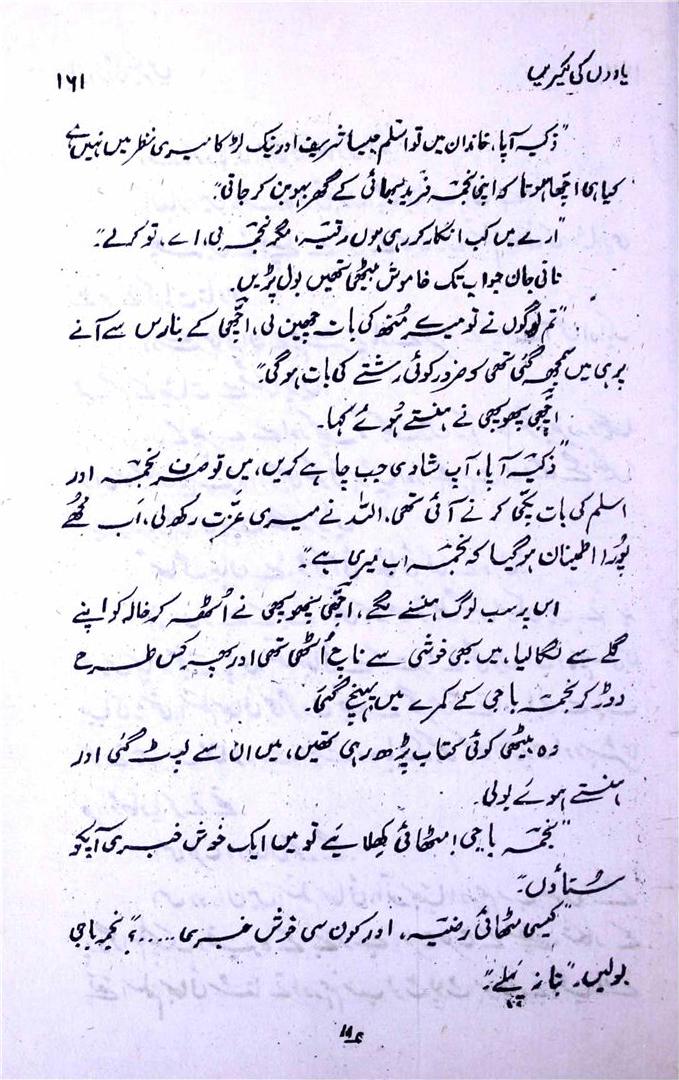 یادوں کی لکیریں
۱۶۱
"ذکیہ آپا، خاندان میں تو اسلم جیسا شریف اور نیک لڑکا میری نظر میں نہیں ہے
کیا ہی اچھا ہوتا کہ اپنی نجمہ فرید بھائی کے گھر بہو بن کر جاتی"۔
"ارے میں کب انکار کر رہی ہوں رقیہ، مگر نجمہ بی، اے، تو کرلے"۔
نانی جان جواب تک خاموش بیٹھی تھیں بول پڑیں۔
"تم لوگوں نے تو میرے منھ کی بات چھین لی، اچھی کے بنارس سے آنے
پر ہی میں سمجھ گئی تھی کہ ضرور کوئی رشتے کی بات ہوگی"۔
اچھی پھوپھی نے ہنستے ہوئے کہا۔
"ذکیہ آپا، آپ شادی جب چاہے کریں، میں تو صرف نجمہ اور
اسلم کی بات پکی کرنے آئی تھی، اللہ نے میری عزّت رکھ لی، اَب مجھے
پُورا اطینان ہوگیا کہ نجمہ اب میری ہے"۔
اس پر سب لوگ ہنسنے لگے، اچھی پھوپھی نے اُٹھ کر خالہ کو اپنے
گلے سے لگالیا، میں بھی خوشی سے ناچ اُٹھی تھی اور پھر کس طرح
دوڑ کر نجمہ باجی کے کمرے میں پہنچ گئی۔
وہ بیٹھی کوئی کتاب پڑھ رہی تھیں، میں ان سے لپٹ گئی اور
ہنستے ہوئے بولی۔
"نجمہ باجی! مٹھائی کھلایئے تو میں ایک خوش خبری آپکو
سُناؤں"۔
"کیسی مٹھائی رضیہ، اور کون سی خوش خبری .....؟" نجمہ باجی
بولیں۔ "بتا نہ پہلے"۔